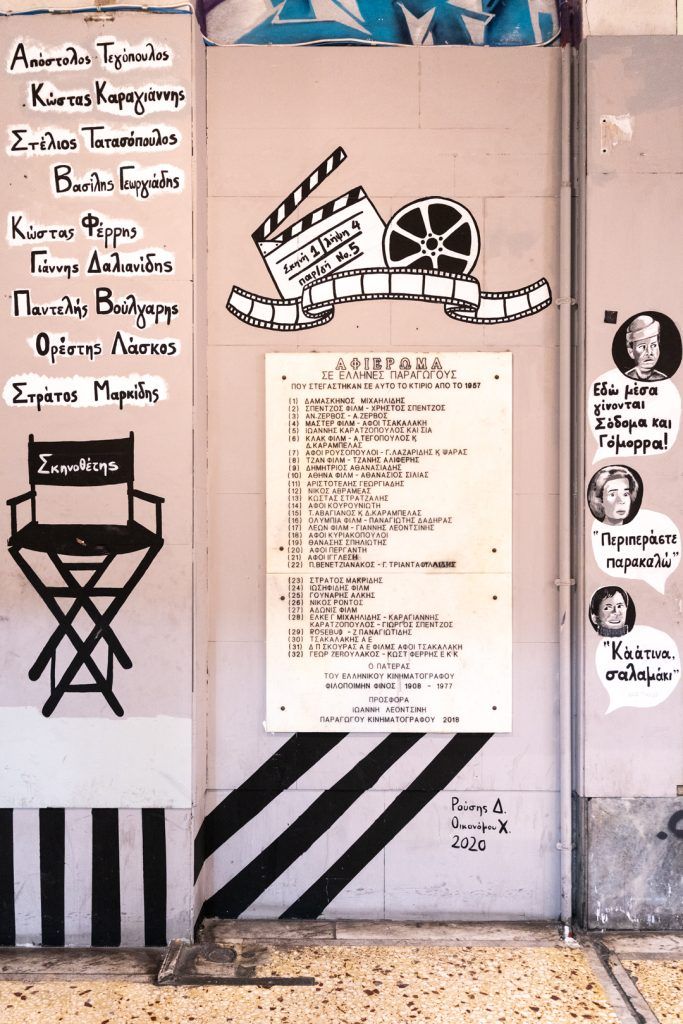 Απόστολος Τεγόπουλος
Κώστας Καραγιάννης
Στέλιος Τατασόπουλος
Βασίλης Γεωργιάδης
Κώστας Φέρρης
Γιάννης Δαλιανίδης
Παντελής Βούλγαρης
Ορέστης Λάσκος
Στράτος Μαρκίδης
Σκηνοθέτης
Σκηνή 1 λήψη 4
παρ/γή Νο. 5
ΑΦΙΕΡΩΜΑ
ΣΕ ΕΛΛΗΝΕΣ ΠΑΡΑΓΩΓΟΥΣ
ΠΟΥ ΣΤΕΓΑΣΤΗΚΑΝ ΣΕ ΑΥΤΟ ΤΟ ΚΤΙΡΙΟ ΑΠΟ ΤΟ 1957
(1) ΔΑΜΑΣΚΗΝΟΣ ΜΙΧΑΗΛΙΔΗΣ
(2) ΣΠΕΝΤΖΟΣ ΦΙΛΜ - ΧΡΗΣΤΟΣ ΣΠΕΝΤΖΟΣ
(3) ΑΝ.ΖΕΡΒΟΣ - Α.ΖΕΡΒΟΣ
(4) ΜΑΣΤΕΡ ΦΙΛΜ - ΑΦΟΙ ΤΣΑΚΑΛΑΚΗ
(5) ΙΩΑΝΝΗΣ ΚΑΡΑΤΖΟΠΟΥΛΟΣ ΚΑΙ ΣΙΑ
(6) ΚΛΑΚ ΦΙΛΜ - Α.ΤΕΓΟΠΟΥΛΟΣ Κ
Δ.ΚΑΡΑΜΠΕΛΑΣ
(7) ΑΦΟΙ ΡΟΥΣΟΠΟΥΛΟΙ - Γ.ΛΑΖΑΡΙΔΗΣ Κ ΨΑΡΑΣ
(8) ΤΖΑΝ ΦΙΛΜ - ΤΖΑΝΗΣ ΑΛΙΦΕΡΗΣ
(9) ΔΗΜΗΤΡΙΟΣ ΑΘΑΝΑΣΙΑΔΗΣ
(10) ΑΘΗΝΑ ΦΙΛΜ - ΑΘΑΝΑΣΙΟΣ ΣΙΛΙΑΣ
(11) ΑΡΙΣΤΟΤΕΛΗΣ ΓΕΩΡΓΙΑΔΗΣ
(12) ΝΙΚΟΣ ΑΒΡΑΜΕΑΣ
(13) ΚΩΣΤΑΣ ΣΤΡΑΤΖΑΛΗΣ
(14) ΑΦΟΙ ΚΟΥΡΟΥΝΙΩΤΗ
(15) Τ.ΑΒΑΓΙΑΝΟΣ Κ Δ.ΚΑΡΑΜΠΕΛΑΣ
(16) ΟΛΥΜΠΙΑ ΦΙΛΜ - ΠΑΝΑΓΙΩΤΗΣ ΔΑΔΗΡΑΣ
(17) ΛΕΩΝ ΦΙΛΜ - ΓΙΑΝΝΗΣ ΛΕΟΝΤΣΙΝΗΣ
(18) ΑΦΟΙ ΚΥΡΙΑΚΟΠΟΥΛΟΙ
(19) ΘΑΝΑΣΗΣ ΣΠΗΛΙΩΤΗΣ
(20) ΑΦΟΙ ΠΕΡΓΑΝΤΗ
(21) ΑΦΟΙ ΙΓΓΛΕΣΗ
(22) Π.ΒΕΝΕΤΖΙΑΝΑΚΟΣ - Γ.ΤΡΙΑΝΤΑΦΥΛΛΙΔΗΣ
(23) ΣΤΡΑΤΟΣ ΜΑΚΡΙΔΗΣ
(24) ΙΩΣΗΦΙΔΗΣ ΦΙΛΜ
(25) ΓΟΥΝΑΡΗΣ ΑΛΚΗΣ
(26) ΝΙΚΟΣ ΡΟΝΤΟΣ
(27) ΑΔΩΝΙΣ ΦΙΛΜ
(28) ΕΛΚΕ Γ ΜΙΧΑΗΛΙΔΗΣ - ΚΑΡΑΓΙΑΝΝΗΣ
ΚΑΡΑΤΖΟΠΟΥΛΟΣ - ΓΙΩΡΓΟΣ ΣΠΕΝΤΖΟΣ
(29) ROSEBUD - Ζ ΠΑΝΑΓΙΩΤΙΔΗΣ
(30) ΤΣΑΚΑΛΑΚΗΣ Α Ε
(31) Δ Π ΣΚΟΥΡΑΣ Α Ε ΦΙΛΜΣ ΑΦΟΙ ΤΣΑΚΑΛΑΚΗ
(32) ΓΕΩΡ ΖΕΡΟΥΛΑΚΟΣ - ΚΩΣΤ ΦΕΡΡΗΣ Ε Κ Κ
Ο ΠΑΤΕΡΑΣ
ΤΟΥ ΕΛΛΗΝΙΚΟΥ ΚΙΝΗΜΑΤΟΓΡΑΦΟΥ
ΦΙΛΟΠΟΙΜΗΝ ΦΙΝΟΣ 1908 - 1977
ΠΡΟΣΦΟΡΑ
ΙΩΑΝΝΗ ΛΕΟΝΤΣΙΝΗ
ΠΑΡΑΓΩΓΟΥ ΚΙΝΗΜΑΤΟΓΡΑΦΟΥ 2018
Ρούσης Δ.
Οικονόμου Χ.
2020
Εδώ μέσα
γίνονται
Σόδομα και
Γόμορρα!
"Περιπεράετε
παρακαλώ"
"Κάατινα,
σαλαμάκι"